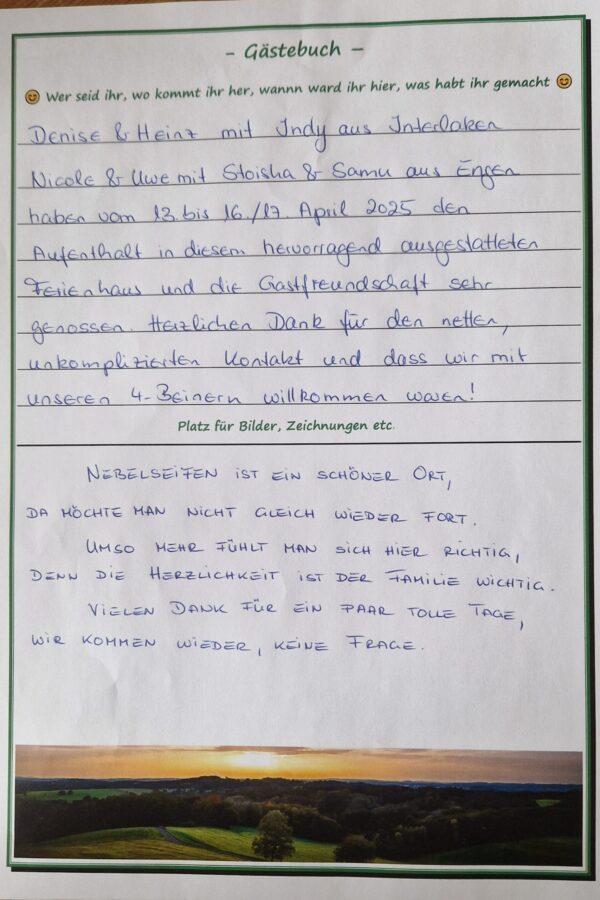 – Gästebuch –
😊 Wer seid ihr, wo kommt ihr her, wannn ward ihr hier, was habt ihr gemacht 😊
Denise & Heinz mit Indy aus Interlaken
Nicole & Uwe mit Stoisha & Samu aus Engen
haben vom 13. bis 16./17. April 2025 den
Aufenthalt in diesem hervorragend ausgestatteten
Ferienhaus und die Gastfreundschaft sehr
genossen. Herzlichen Dank für den netten,
unkomplizierten Kontakt und dass wir mit
unseren 4-Beinern willkommen waren!
Platz für Bilder, Zeichnungen etc.
NEBELSEIFEN IST EIN SCHÖNER ORT,
DA MÖCHTE MAN NICHT GLEICH WIEDER FORT.
UMSO MEHR FÜHLT MAN SICH HIER RICHTIG,
DENN DIE HERZLICHKEIT IST DER FAMILIE WICHTIG.
VIELEN DANK FÜR EIN PAAR TOLLE TAGE,
WIR KOMMEN WIEDER, KEINE FRAGE.